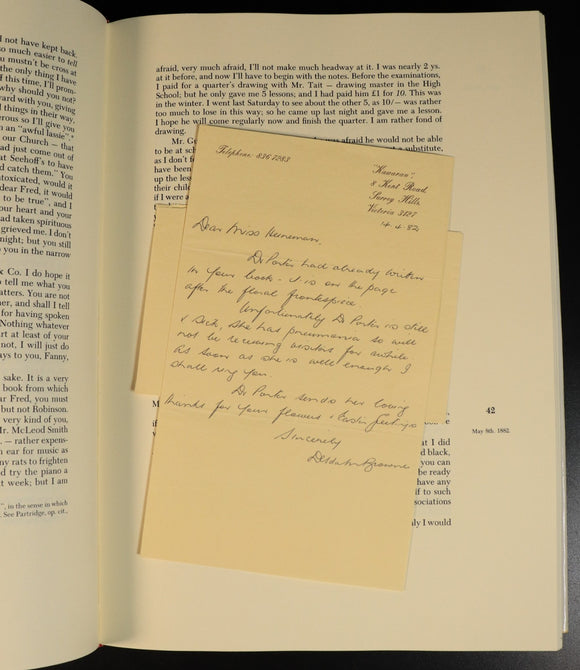 I not have kept back
so much easier to tell
u mustn't be cross at
the only thing I have
f this time, I'll prom-
why should you not?
ard with you, giving
d things in their way,
erous so I'll give you
n an "awfu lassie".
our Church — that
ad just come out of
at Seehoff's to have
d catch them." You
ntoxicated, would it
dear Fred, it would
to be true", and I
our heart and your
ad taken spirituous
grieved me. I don't
night; but you still
you in the narrow
& Co. I do hope it
tell me what you
atters. You are not
er, and shall I tell
for having spoken
Nothing whatever
rt at least of your
not, I will just do
ays to you, Fanny,
sake. It is a very
book from which
ear Fred, you must
but not Robinson.
very kind of you,
Mr. McLeod Smith
— rather expens-
n ear for music as
ny rats to frighten
d try the piano a
t week; but I am
", in the sense in which
See Partridge, op. cit.,
afraid, very much afraid, I'll not make much headway at it. I was nearly 2 ys.
at it before, and now I'll have to begin with the notes. Before the examinations,
I paid for a quarter's drawing with Mr. Tait — drawing master in the High
School; but he only gave me 5 lessons; and I had paid him £1 for 10. This was
in the winter. I went last Saturday to see about the other 5, as 10/— was rather
too much to lose in this way; so he came up last night and gave me a lesson.
I hope he will come regularly now and finish the quarter. I am rather fond of
drawing.
was afraid he would not be able
to be at
substitute,
as I don't
have been
up the less
their child
if I were a
Telephone 836 7283
"Kawarau",
8 Kent Road
Surrey Hills
Victoria 3127
4.4.82
Dear Miss Heineman,
Dr Porter had already written
in your book - it is on the page
after the floral frontispiece.
Unfortunately Dr Porter is still
v sick, she has pneumonia so will
not be receiving visitors for awhile
As soon as she is well enough I
shall ring you.
Dr Porter sends her loving
thanks for your flowers & Easter Greetings
Sincerely
Browne
42
May 8th. 1882.
I did
d black,
you can
be ready
have any
if to such
sociations
nly I would